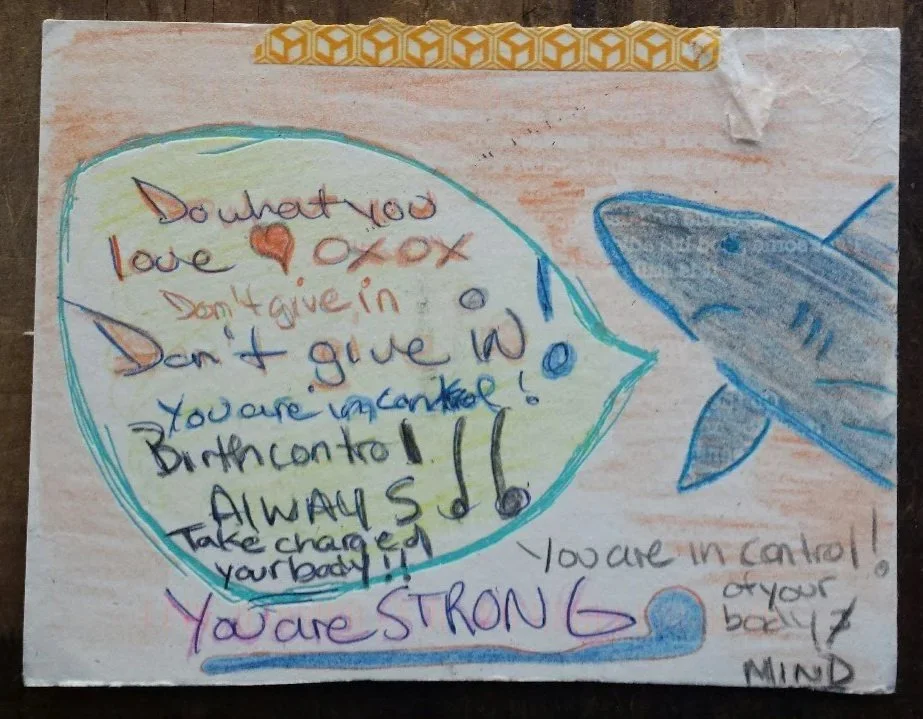 Do what you
love ❤ OXOX
Don't give in
Don't give iN!
You are in control!
Birth control
AlWAYS!!
Take charge of
your body!!
You are STRONG
You are in control!
of your
body &
MIND